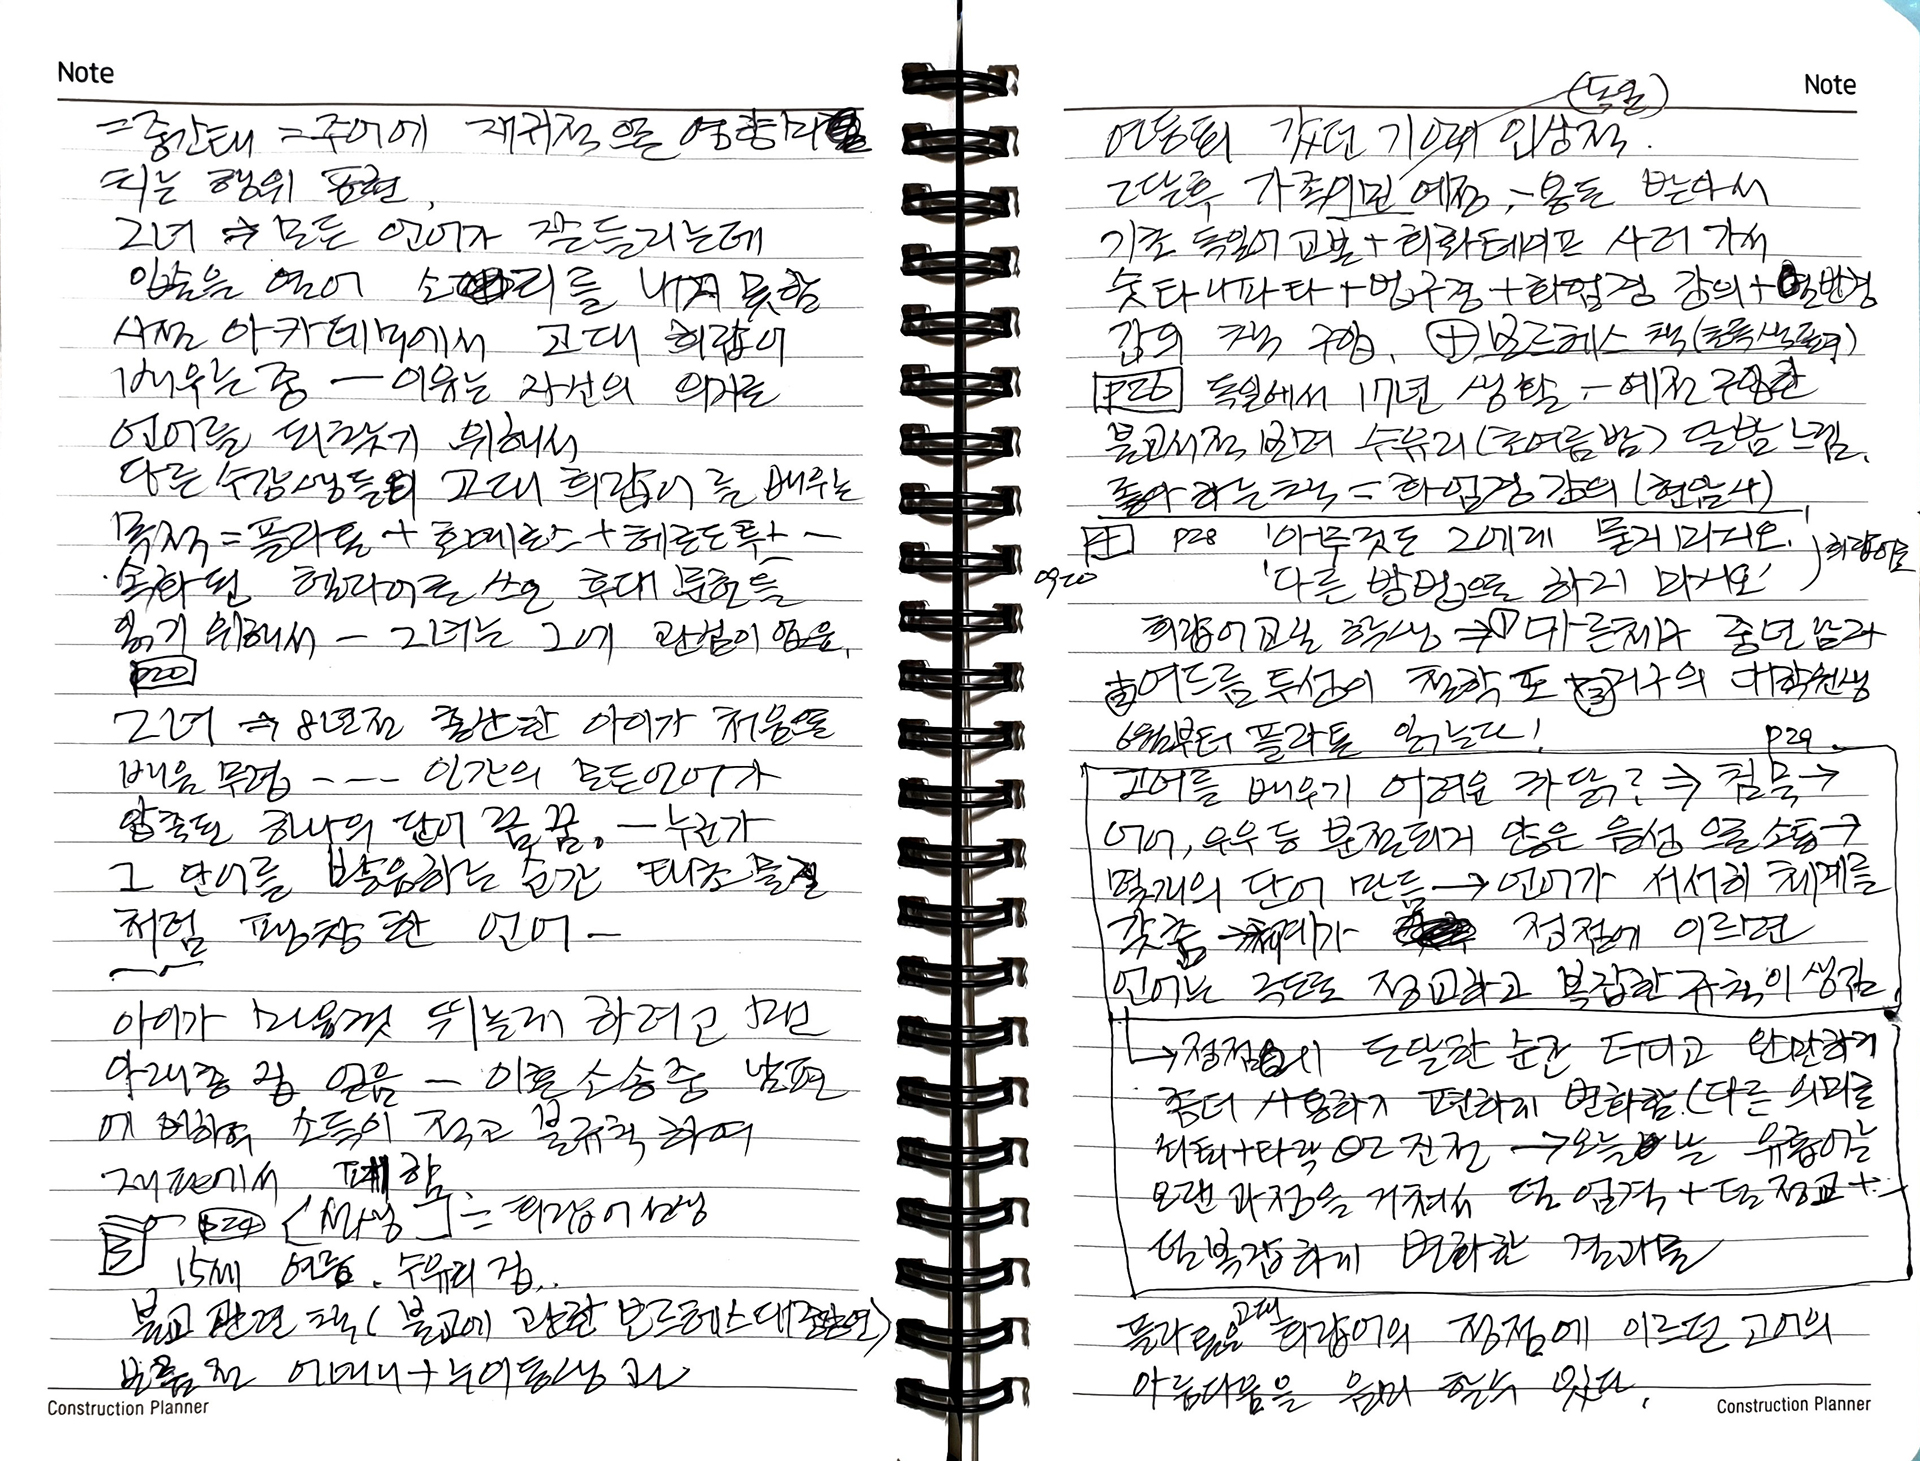 Note
= 중간태 = 주어에 재귀적으로 영향미
치는 행위 표현.
그녀 ⇒ 모든 언어가 잘 들리는데
입술을 열어 소리를 내지 못함
사설 아카데미에서 고대 희랍어
배우는 중 — 이유는 자신의 의지로
언어를 되찾기 위해서
다른 수강생들의 고대 희랍어를 배우는
목적 = 플라톤 + 호메로스 + 헤로도투스 —
속화된 헬라어로 쓰인 후대 문헌을
읽기 위해서 — 그녀는 그에 관심이 없음.
p20
그녀 ⇒ 8년전 출산한 아이가 처음으로
배울 무렵 ---- 인간의 모든언어가
압축된 하나의 단어 꿈 꿈. — 누군가
그 단어를 발음하는 순간 태초 물질
처럼 팽창한 언어 —
아이가 뛰놀게 하려고
이혼 소송중 남편
에 비하여 소득이 적고 불규칙하여
재판에서 패함.
3 p24 [남성] = 희랍어 선생
15세 수유리 집..
불교 관련 책 (불교에 관한 보르헤스 대중강연)
어머니 + 누이동생과
Construction Planner
Note
(독일)
연등회 갔던 기억이 인상적.
2달후 가족이민 예정, - 용돈 받아서
기초 독일어 교본 + 회화테이프 사러 가서
숫타니파타 + 법구경 + 화엄경 강의 + 열반경
강의 책 구함. ⊕ 보르헤스 책
p26 독일에서 17년 생활 - 예전 구입한
불교서적 보며 수유리 (초여름밤) 달밤 느낌.
좋아하는책 = 화엄경 강의 (현암사)
4 p28 '아무것도 그에게 묻지 마시오.
09-20 '다른 방법으로 하지 마시오' ) 희랍어로
희랍어교실 학생 ⇒ ① 마른체구 중년 남자
② 여드름 투성이 철학도 + ③ 거구의 대학원생
6월부터 플라톤 읽는다!
p29
고어를 배우기 어려운 까닭? ⇒ 침묵 →
어어, 우우 등 분절되지 않은 음성으로 소통 →
몇개의 단어 만듬 → 언어가 서서히 체계를
갖춤 → 체계가 정점에 이르면
언어는 극도로 정교하고 복잡한 규칙이 생김
→ 정점에 도달한 순간 더디고 완만하게
좀더 사용하기 편하게 변화함. (다른 의미로
쇠퇴 + 타락 or 진전 → 오늘날 는 유럽어는
오랜 과정을 거쳐서 덜 엄격 + 덜 정교 +
덜복잡하게 변화한 결과물
플라톤은 고대 희랍어의 정점에 이르던 고어의
아름다움을 음미 할수 있다.
Construction Planner